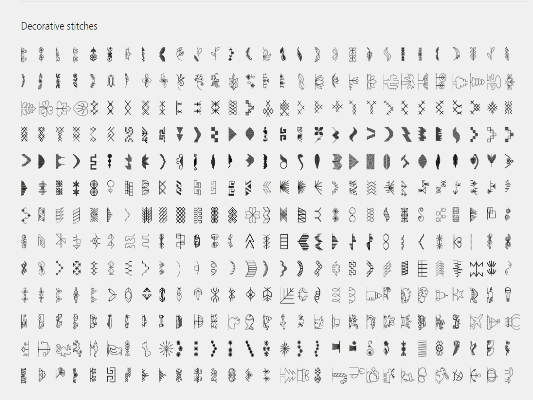 Decorative stitches